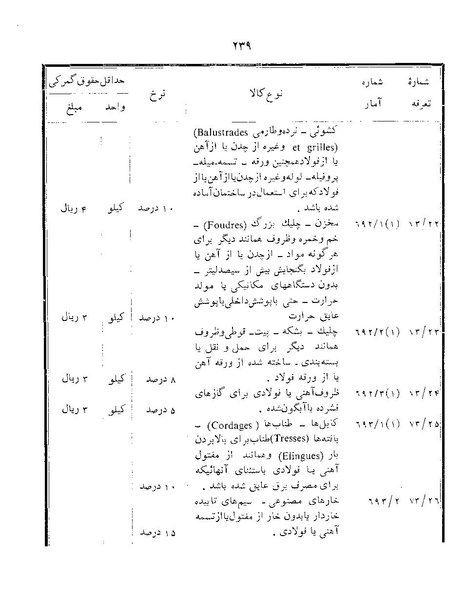 ۲۳۹
شمارهٔ تعرفه شماره آمار نوع کالا نرخ حداقل حقوق گمرکی
واحد مبلغ
کشوئی - نرده و طارمی (Balustrades
et grilles) و غیره از چدن یا از آهن
یا از فولاد همچنین ورقه - تسمه، میله -
پروفیله - لوله و غیره از چدن یا از آهن یا از
فولاد که برای استعمال در ساختمان آماده
شده باشد . ۱۰ درصد کیلو ۴ ریال
۱۳/۲۲ ۶۹۲/۱(۱) مخزن - چلیك بزرگ (Foudres) -
خم و خمره و ظروف همانند دیگر برای
هر گونه مواد - از چدن یا از آهن یا
از فولاد بگنجایش بیش از سیصد لیتر -
بدون دستگاههای مکانیکی یا مولد
حرارت - حتی با پوشش داخلی یا پوشش
عایق حرارت ۱۰ درصد کیلو ۳ ریال
۱۳/۲۳ ۶۹۲/۲(۱) چلیك - بشکه - پیت - قوطی و ظروف
همانند دیگر برای حمل و نقل یا
بسته‌بندی - ساخته شده از ورقه آهن
یا از ورقه فولاد . ۸ درصد کیلو ۳ ریال
۱۳/۲۴ ۶۹۲/۳(۱) ظروف آهنی یا فولادی برای گازهای
فشرده یا آبگون شده . ۵ درصد کیلو ۳ ریال
۱۳/۲۵ ۶۹۳/۱(۱) کابل‌ها - طناب‌ها (Cordages) -
بافته‌ها (Tresses) طناب برای بالا بردن
بار (Elingues) و همانند از مفتول
آهنی یا فولادی باستثنای آنهائیکه
برای مصرف برق عایق شده باشد . ۱۰ درصد
۱۳/۲۶ ۶۹۳/۲ خارهای مصنوعی - سیم‌های تابیده
خاردار یا بدون خار از مفتول یا از تسمه
آهنی یا فولادی . ۱۵ درصد